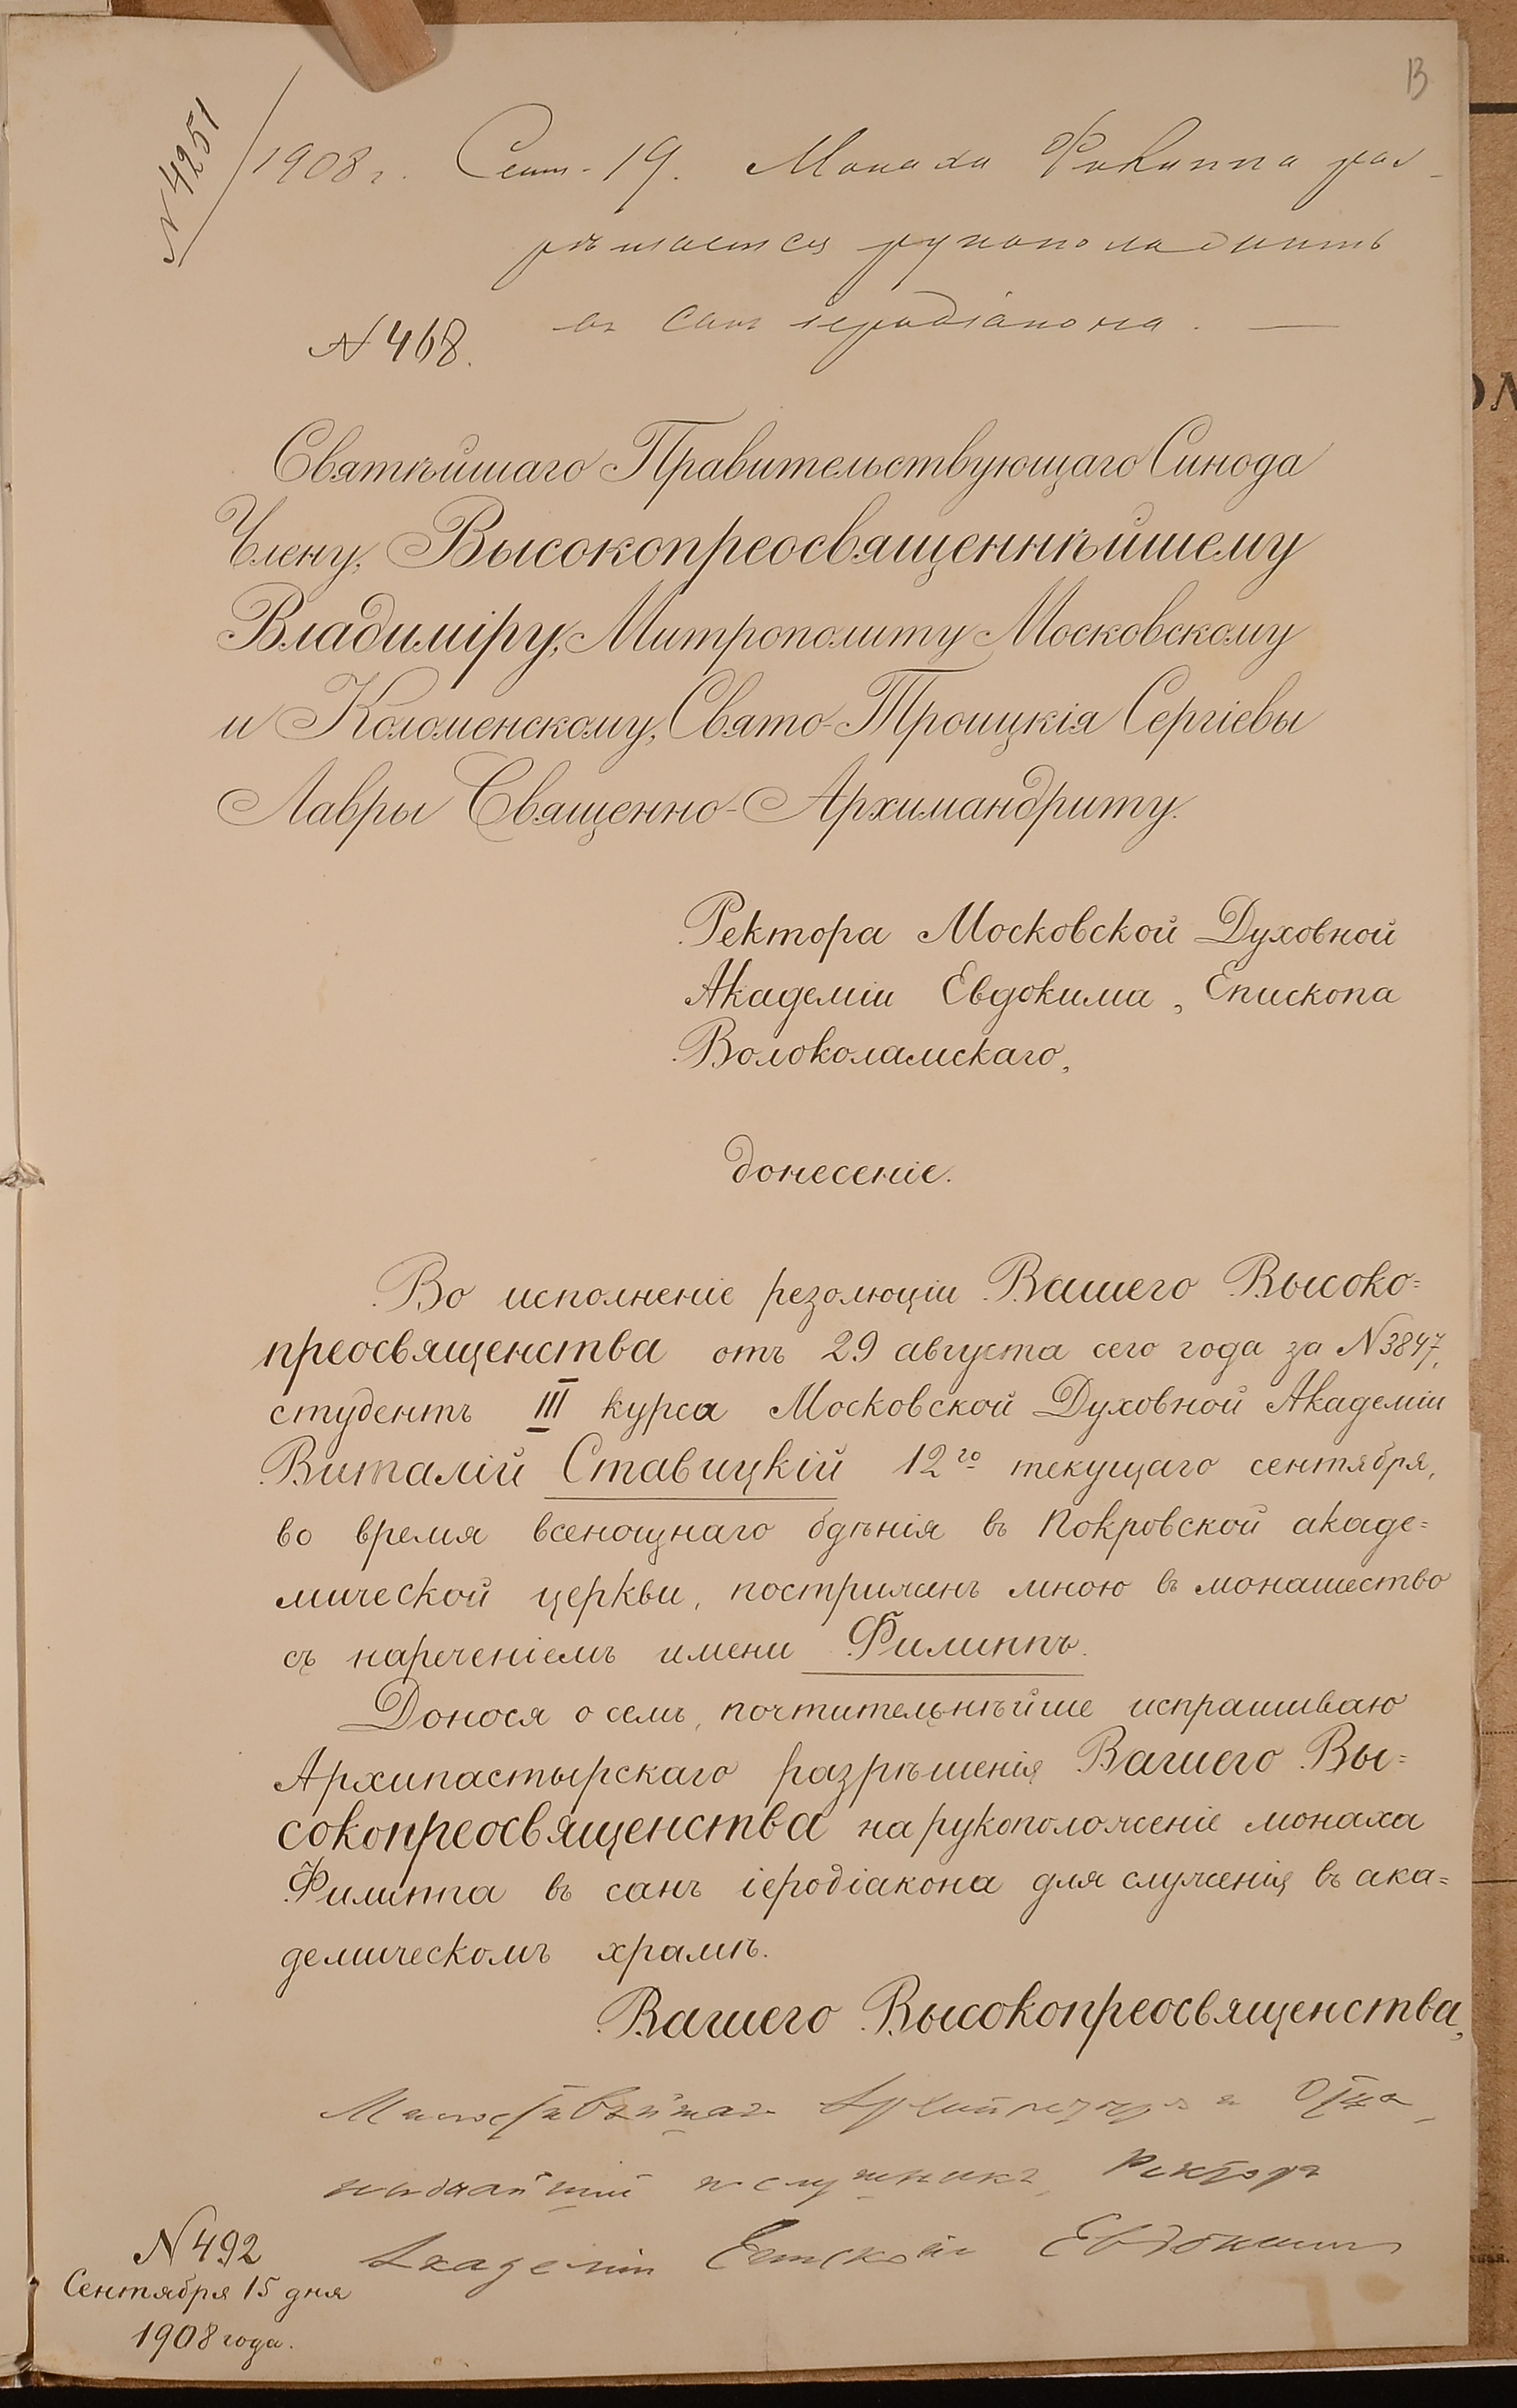 13
№ 4251
1908 г. Сент. 19. Монаха Филиппа раз-
рѣшается рукоположить
въ санъ іеродіакона. —
№ 468.
Святѣйшаго Правительствующаго Синода
Члену, Высокопреосвященнѣйшему
Владиміру, Митрополиту Московскому
и Коломенскому, Свято-Троицкія Сергіевы
Лавры Священно-Архимандриту.
Ректора Московской Духовной
Академіи Евдокима, Епископа
Волоколамскаго,
донесеніе.
Во исполненіе резолюціи Вашего Высоко=
преосвященства отъ 29 августа сего года за № 3847,
студентъ III курса Московской Духовной Академіи
Виталій Ставицкій 12го текущаго сентября,
во время всенощнаго бдѣнія въ Покровской акаде=
мической церкви, постриженъ мною въ монашество
съ нареченіемъ имени Филиппъ.
Донося о семъ, почтительнѣйше испрашиваю
Архипастырскаго разрѣшенія Вашего Вы=
сокопреосвященства на рукоположеніе монаха
Филиппа въ санъ іеродіакона для служенія въ ака=
демическомъ храмѣ.
Вашего Высокопреосвященства,
Милостивѣйшаго Архипастыря и Отца,
нижайшій послушникъ, Ректоръ
Академіи Епископъ Евдокимъ
№ 492
Сентября 15 дня
1908 года.